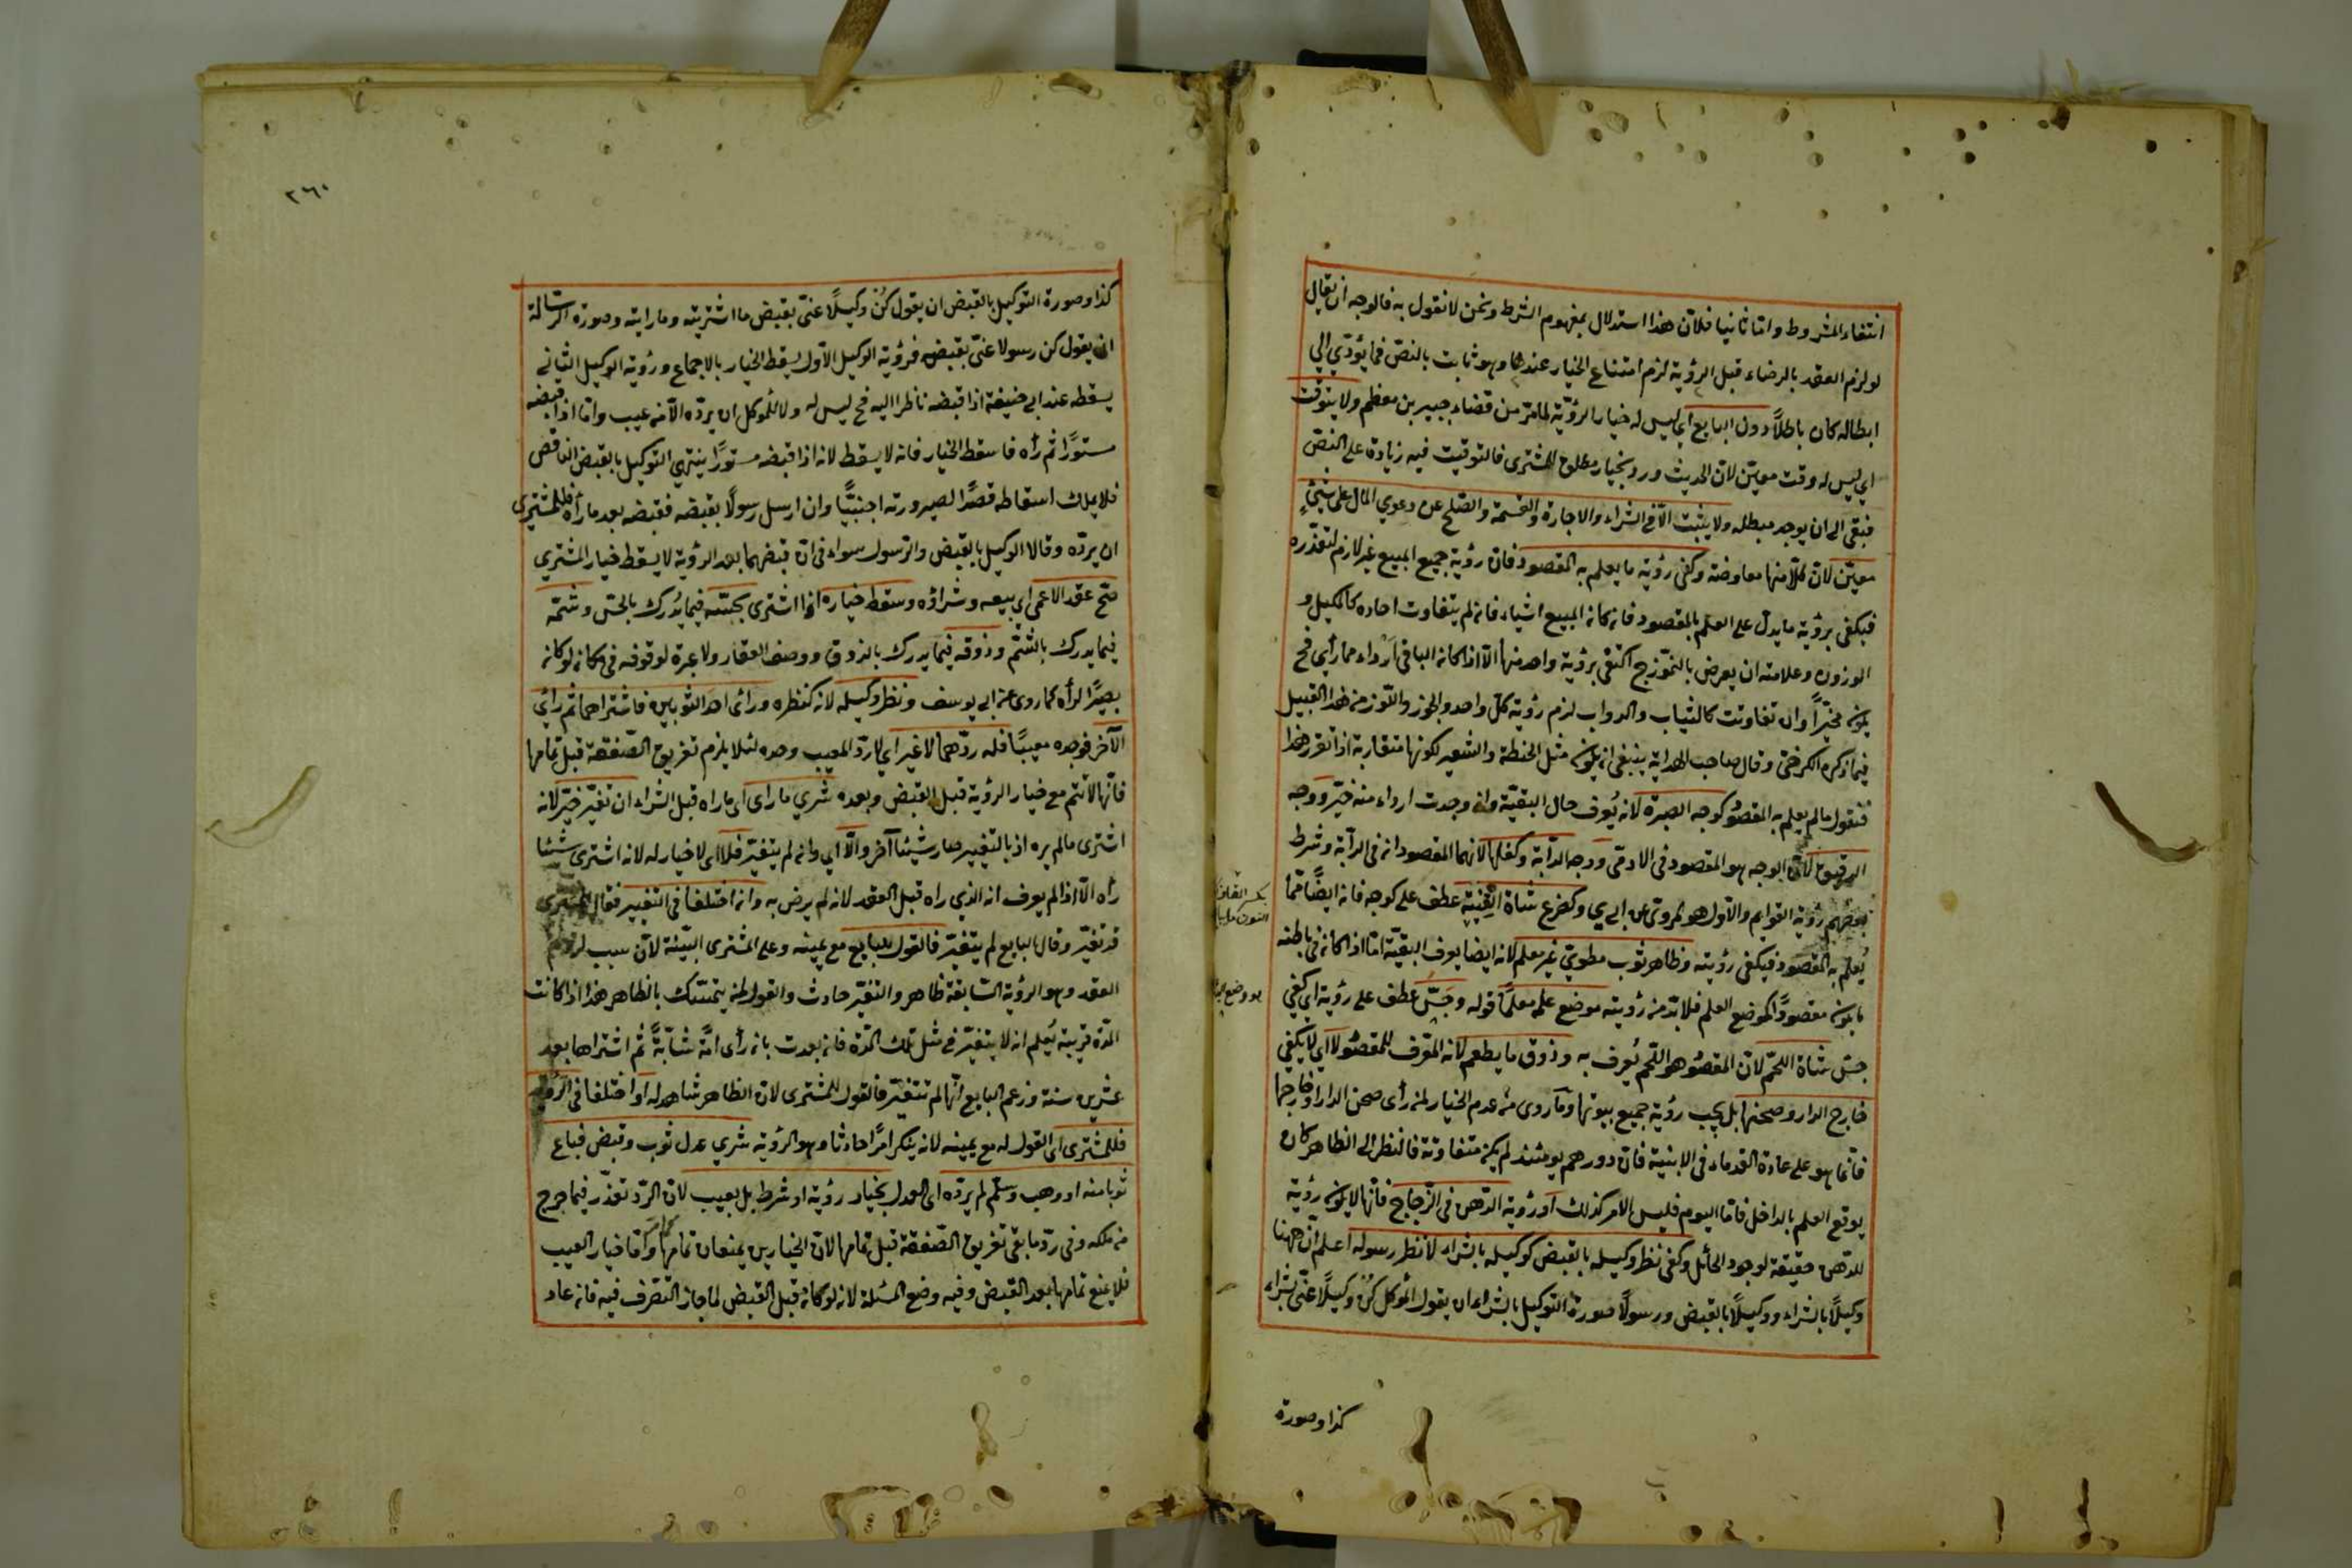 انتفاء المشروط واما ثانيا فلان هذا استدلال بمفهوم الشرط ونحن لا نقول به فالوجه ان يقال
لو لزم العقد بالرضاء قبل الرؤية لزم امتناع الخيار عندها وهو ثابت بالنص فما يؤدي الي
ابطاله كان باطلاً دون البايع اي ليس له خيار الرؤية لما مر من قضاء جبير بن مطعم ولا يتوقت
اي ليس له وقت معين لان الحديث ورد بخيار مطلق للمشتري فالتوقيت فيه زيادة على النص
فبقى الى ان يوجد مبطله ولا يثبت الا في الشراء والاجارة والقسمة والصلح عن دعوي المال على شئٍ
معين لان كلا منها معاوضة وكفى رؤية ما يعلم به المقصود فان رؤية جميع المبيع غير لازم لتعذره
فيكفي برؤية ما يدل على العلم بالمقصود فان كان المبيع اشياء فان لم يتفاوت احاده كالمكيل و
الموزون وعلامته ان يعرض بالنموذج اكتفى برؤية واحد منها الا اذا كان الباقي ارداء مما رأي فح
يكون مخيراً وان تفاوتت كالثياب والدواب لزم رؤية كل واحد والجوز واللوز من هذا القبيل
فيما ذكره الكرخي وقال صاحب الهداية ينبغي ان يكون مثل الحنطة والشعير لكونها متقاربة اذا تقرر هذا
فنقول ما لم يعلم به المقصود كوجه الصبرة لانه يُعرف حال البقية وان وجدت ارداء منه خير ووجه
الرقيق لان الوجه هو المقصود في الادمي ووجه الدابة وكفلها لانهما المقصودان في الدابة وشرط
بعضهم رؤية القوايم والاول هو المروي عن ابي ي وكضرع شاة القنية عطف على كوجه فانه ايضًا مما
يُعلم به المقصود فيكفي رؤيته وظاهر ثوب مطوي غير معلم لانه ايضا يعرف البقية اما اذا كان في باطنه
ما يكون مقصودًا كموضع العلم فلا بد من رؤيته موضع علمه معلمًا قوله وجَسُّ عطف على رؤية اي كفي
جس شاة اللحم لان المقصود هو اللحم يُعرف به وذوق ما يطعم لانه المعرف للمقصود لا اي لا يكفي
خارج الدار وصحنها بل يجب رؤية جميع بيوتها وما روى من عدم الخيار لمن رأى صحن الدار او خارجها
فانما هو على عادة القدماء في الابنية فان دورهم يومئذ لم يكن متفاوتة فالنظر الى الظاهر كان
يوقع العلم بالداخل فاما اليوم فليس الامر كذلك او رؤية الدهن في الزجاج فانها لا يكون رؤية
للدهن حقيقة لوجود الحائل وكفى نظر وكيله بالقبض كوكيله بالشراء لا نظر رسوله اعلم ان ههنا
وكيلاً بالشراء ووكيلاً بالقبض ورسولاً صورة التوكيل بالشراء ان يقول الموكل كُن وكيلاً عني بشراء
كذا وصورة
٢٦٠
كذا وصورة التوكيل بالقبض ان يقول كُن وكيلاً عني بقبض ما اشتريته وما رايته وصورة الرسالة
ان يقول كن رسولا عني بقبضه فرؤية الوكيل الاول يسقط الخيار بالاجماع ورؤية الوكيل الثاني
يسقطه عند ابي حنيفة اذا قبضه ناظرا اليه فح ليس له ولا للموكل ان يرده الا من عيب واما اذا قبضه
مستورًا ثم رأه فاسقط الخيار فانه لا يسقط لانه اذا قبضه مستورًا ينتهي التوكيل بالقبض الناقص
فلا يملك اسقاطه قصدًا لصيرورته اجنبيًّا وان ارسل رسولاً بقبضه فقبضه بعد ما رأه فللمشتري
ان يرده وقالا الوكيل بالقبض والرسول سواء في ان قبضهما بعد الرؤية لا يسقط خيار المشتري
صح عقد الاعمى اي بيعه وشراؤه وسقط خياره اذا اشترى بجسه فيما يُدرك بالجس وشمه
فيما يدرك بالشم وذوقه فيما يدرك بالذوق ووصف العقار ولا عبرة لوقوفه في مكان لو كان
بصيرًا لرأه كما روى عن ابي يوسف ونظر وكيله لانه كنظره ورائ احد الثوبين فاشتراهما ثم رائي
الآخر فوجده معيبًا فله ردهما لا غير اي لا رد المعيب وحده لئلا يلزم تفريق الصفقة قبل تمامها
فانها لا تتم مع خيار الرؤية قبل القبض وبعده شري ما راى اى ما راه قبل الشراء ان تغير خير لانه
اشترى ما لم يره اذ بالتغيير صار شيئا آخر والا اي وان لم يتغير فلا اى لا خيار له لانه اشترى شيئا
رأه الا اذا لم يعرف انه الذي راه قبل العقد لانه لم يرض به وان اختلفا في التغيير فقال المشتري
قد تغير وقال البايع لم يتغير فالقول للبايع مع يمينه وعلى المشترى البينة لان سبب لزوم
العقد وهو الرؤية السابقة ظاهر والتغير حادث والقول لمن يتمسك بالظاهر هذا اذا كانت
المدة قريبة يُعلم انه لا يتغير في مثل تلك المدة فان بعدت بان رأى امةً شابةً ثم اشتراها بعد
عشرين سنة وزعم البايع انها لم تتغير فالقول للمشترى لان الظاهر شاهد له او اختلفا في الرؤية
فللمشترى اى القول له مع يمينه لانه ينكر امرًا حادثا وهو الرؤية شري عدل ثوب وقبض فباع
ثوبا منه او وهب وسلم لم يرده اى العدل بخيار رؤية او شرط بل بعيب لان الرد تعذر فيما خرج
من ملكه وفى رد ما بقى تفريق الصفقة قبل تمامها لان الخيارين يمنعان تمامها كما مر واما خيار العيب
فلا يمنع تمامها بعد القبض وفيه وضع المسئلة لانه لو كان قبل القبض لما جاز التصرف فيه فان عاد